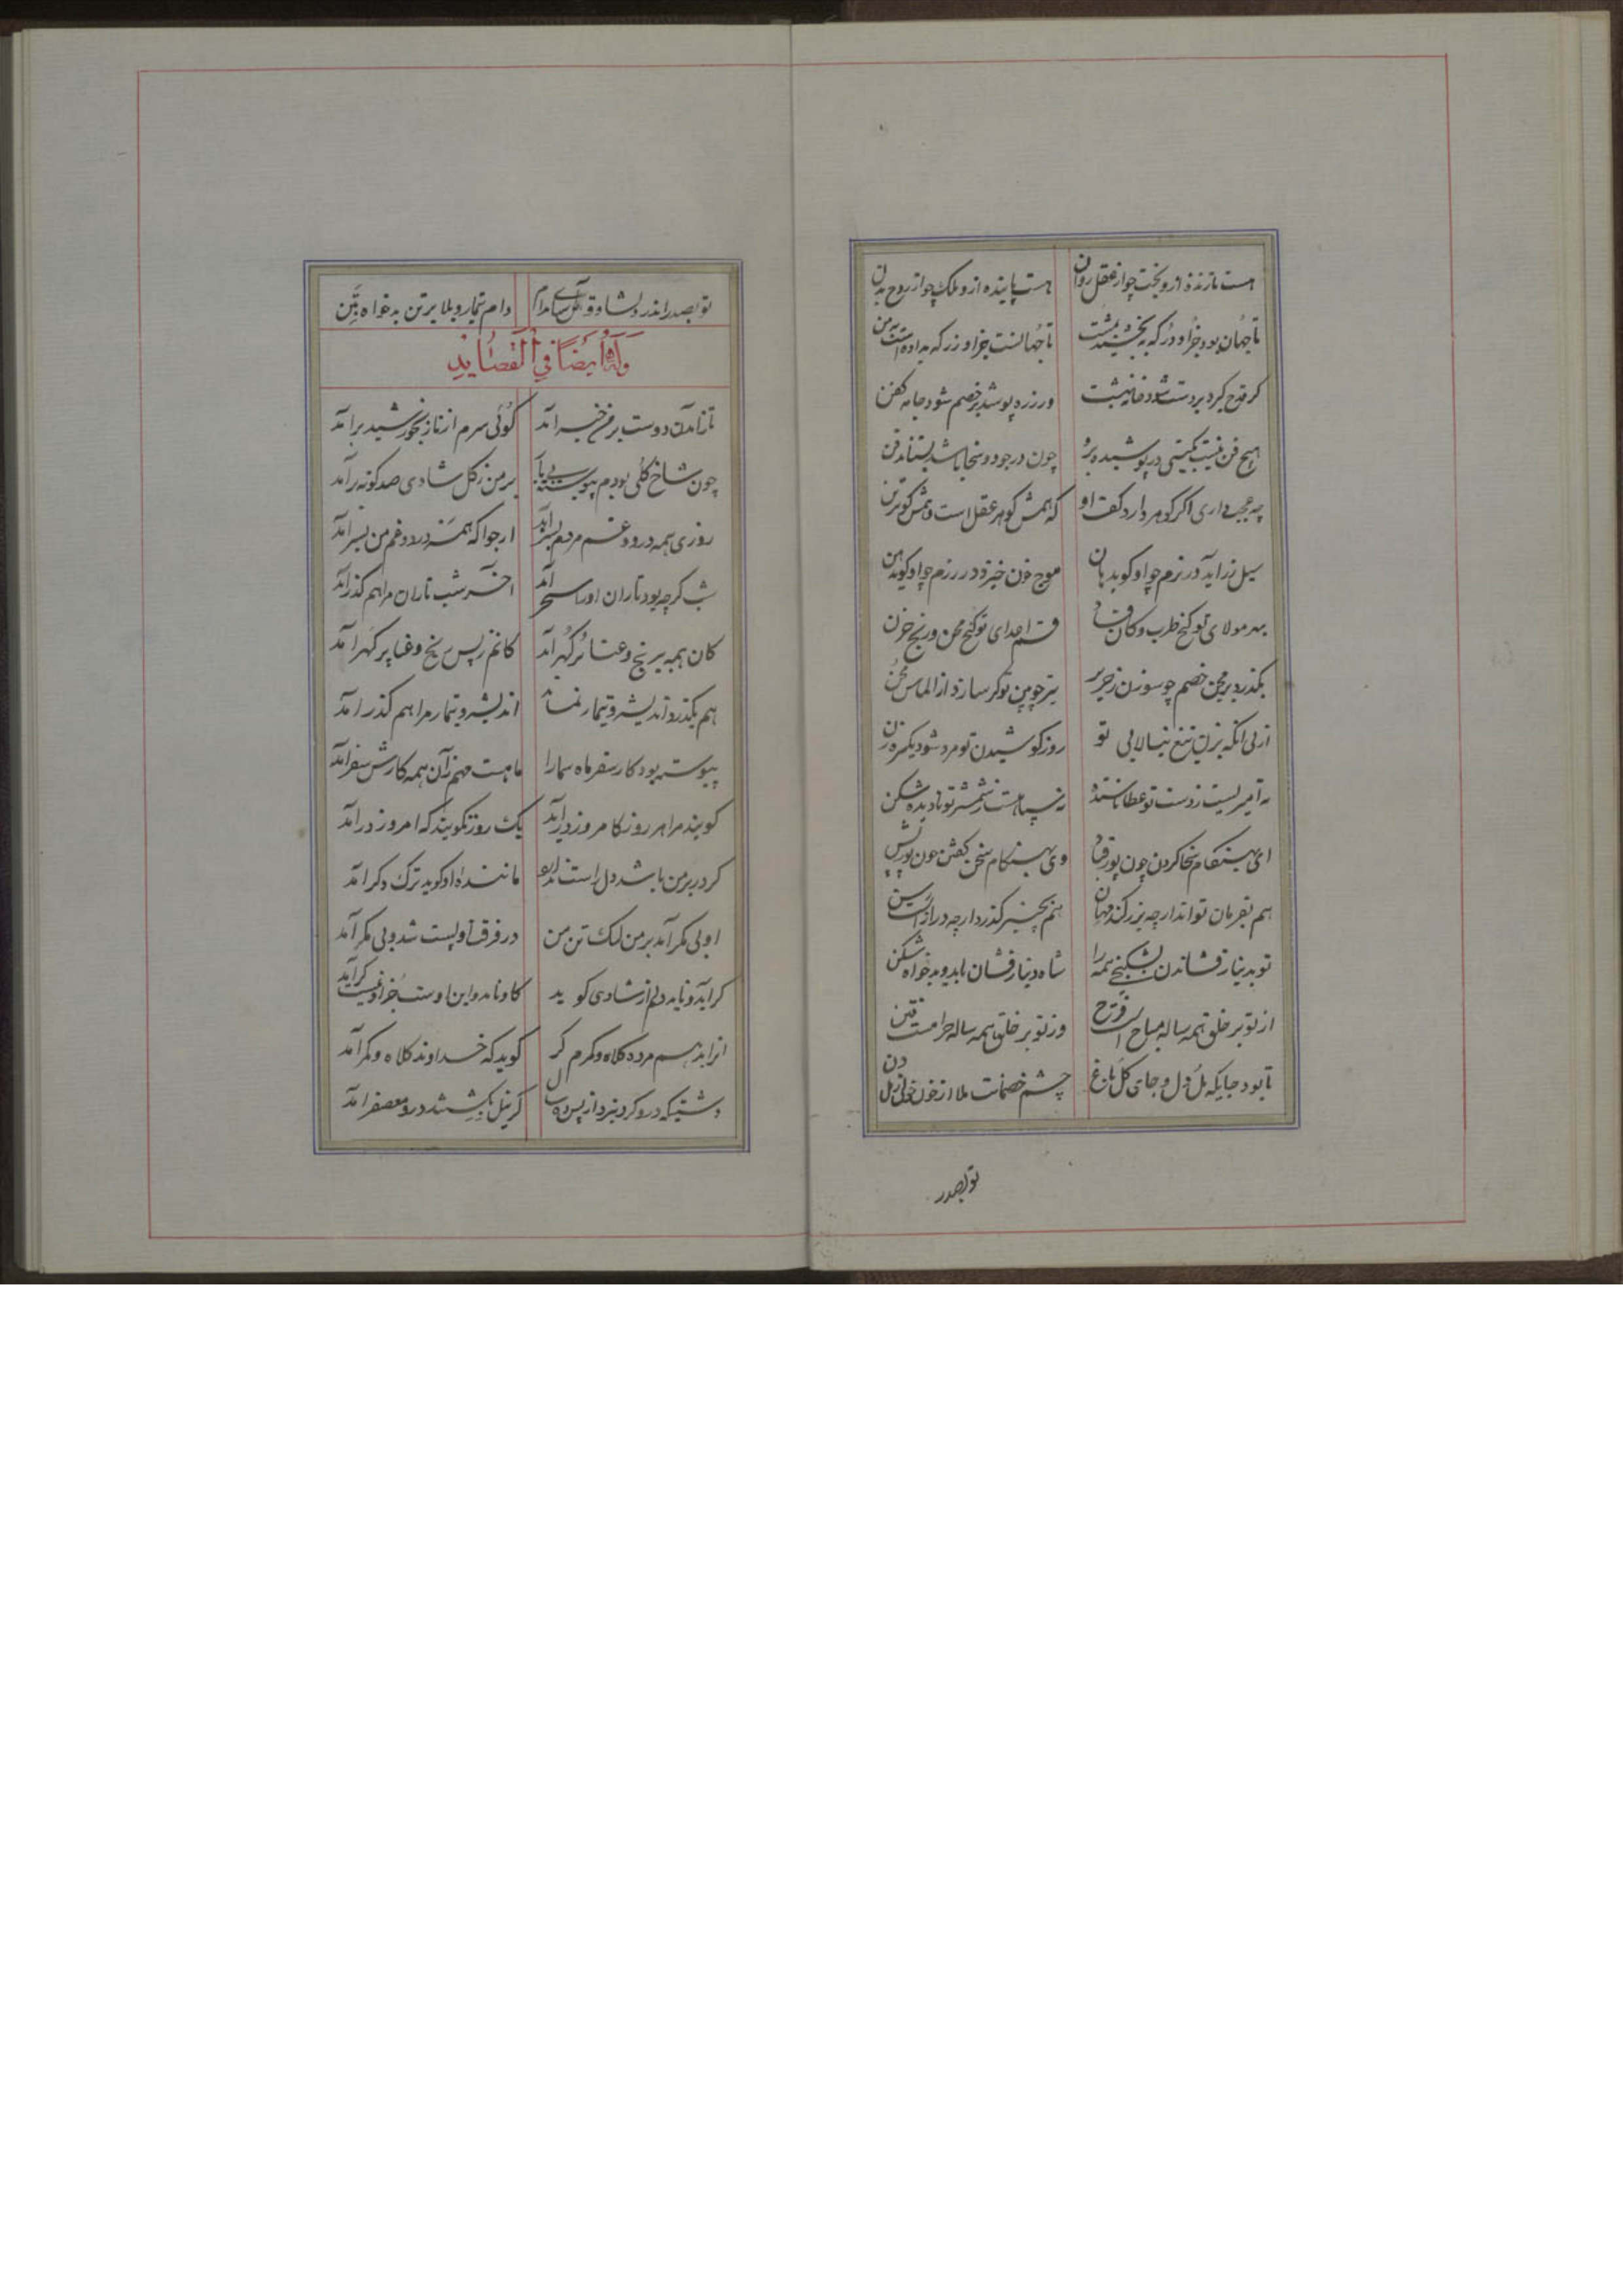 هست تازنده ازو بخت چو از عقل روان هست پاینده ازو ملک چو از روح بدن
تا جهان بود جز او در که ببخشید بمشت تا جهانست جز او زر که بداده است بمن
گر قدح گیرد بر دست شود خانه بهشت ور زره پوشد بر خصم شود جامه کفن
هیچ فن نیست بگیتی در پوشیده برو چون در جود و سخا باشد بستاند فن
چه عجب داری اگر گوهر دارد کف او که همش گوهر عقل است و همش گوهر تن
سیل زر آید در بزم چو او گوید هان موج خون خیزد در رزم چو او گوید هن
بهر مولای تو گنج طرب و کان قسم اعدای تو گنج محن و رنج حزن
بگذرد بر مجن خصم چو سوزن ز حریر تیر چوبین تو گر سازد از الماس مجن
از پی آنکه بزن تیغ نیالایی تو روز کوشیدن تو مرد شود یکسره زن
نه امیریست ز دست تو عطا ناستده نه سپاهست ز شمشیر تو نادیده شکن
ای بهنگام سخا کردن چون پور قباد وی بهنگام سخن گفتن چون پور پشن
هم بفرمان تواند ارچه بزرگند مهان هم بچنبر گذرد ارچه دراز است رسن
تو بدینار فشاندن بشکنجی همه را شاه دینار فشان باید و بدخواه شکن
از تو بر خلق همه ساله مباح است فرح وز تو بر خلق همه ساله حرامست فتن
تا بود جایگه مل دل و جای گل باغ چشم خصمانت ملا از خون خالی از دل دن
تو بصدر
تو بصدر اندر دلشاد و قوی آسای مدام دام تیمار و بلا بر تن بدخواه بتن
وله ایضا فی القصاید
تا ز آمدن دوست بر من خبر آمد گوئی سرم از ناز بخورشید برآمد
چون شاخ گلی بودم پیوسته بی بار بر من ز گل شادی صد گونه برآمد
روزی همه درد و غم مردم بسر آید ارجو که همه درد و غم من بسر آمد
شب گرچه بود تاران او را سحر آمد آخر شب تاران مرا هم گذر آمد
کان همه بی رنج و عنا پر گهر آمد کانم ز پس رنج و عنا پر گهر آمد
هم بگذرد اندیشه و تیمار اندیشه و تیمار مرا هم گذر آمد
پیوسته بود کار سفر ماه سما را ماهست مهم زآن همه کارش سفر آمد
گویند مرا هر روز کامروز درآید یک روز نگویند که امروز درآمد
گر در بر من باشد دل راست ماننده او گوید ترک دگر آمد
او بی مگر آمد بر من لیک تن من در فرقت او پست شد و بی مگر آمد
گر آید و ناید دلم از شادی گوید کاو نامد و این اوست جز او نیست گر آید
آنرا بدهم مرده کلاه و کمرم گر گوید که خداوند کلاه و کمر آمد
گر نیل بکشتند درو معصفر آمد